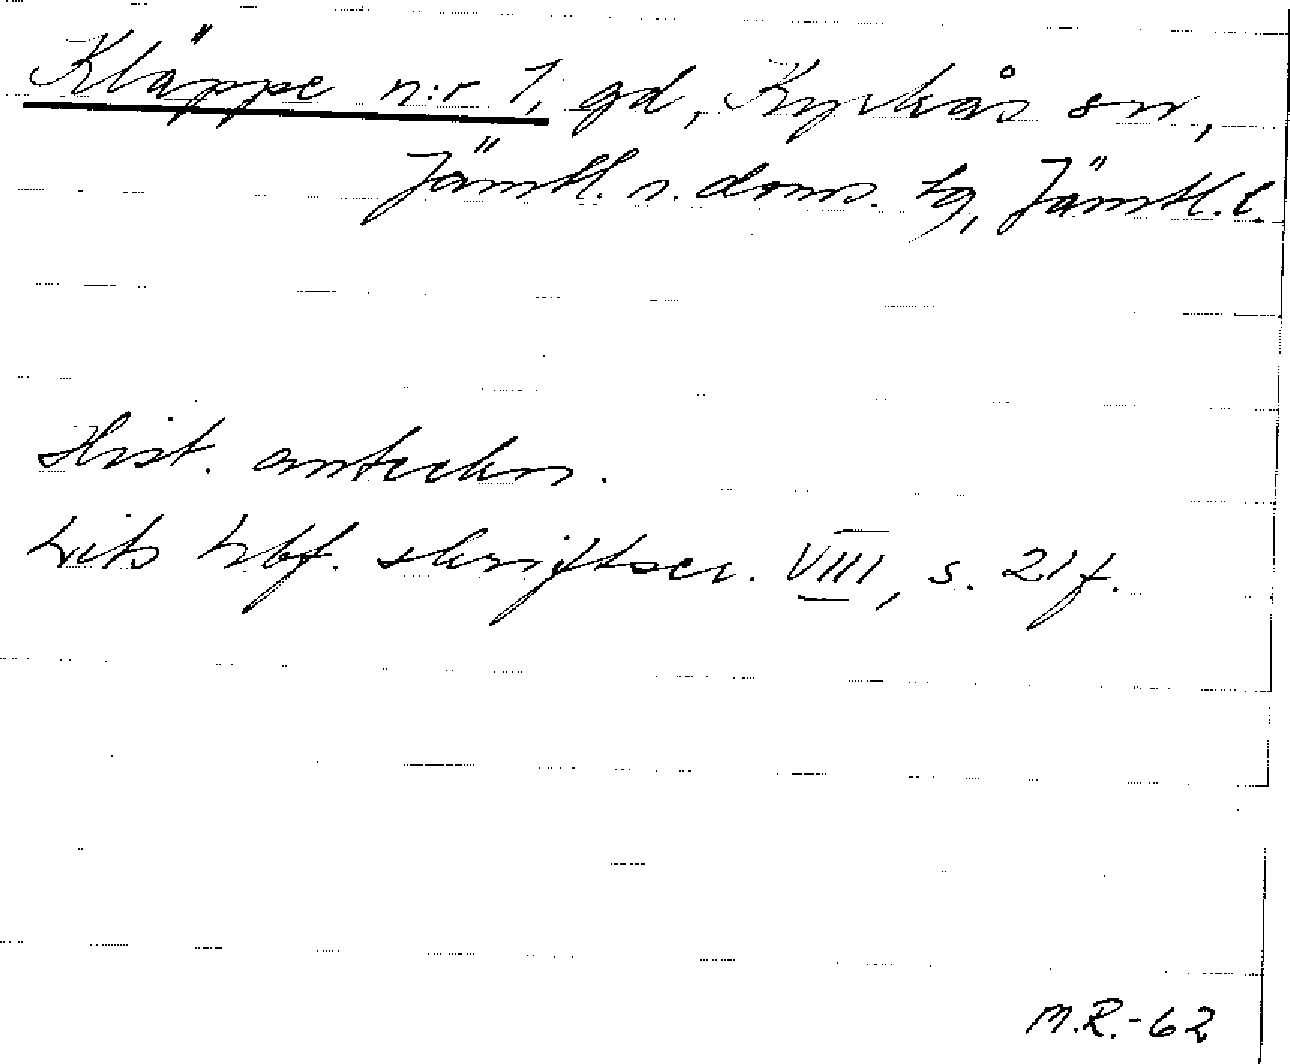 Kläppe n:r 1, gd, Kyrkås sn,
Jämtl. n. doms. tg, Jämtl. l.
Hist. anteckn.
Lits hbf. skriftser. VIII, s. 21 f.
M.R.-62